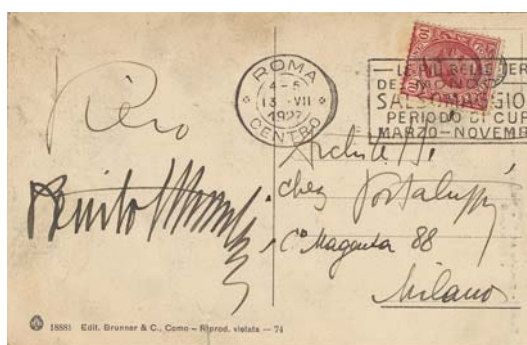 Piero
Benito Mussolini
ROMA
4-5
13 · VII
1927
CENTRO
10
LE PIÙ BELLE TER
DEL MONDO
SALSOMAGGIO
PERIODO DI CUR
MARZO-NOVEMB
chez Portaluppi
Co Magenta 88
Milano
18881 Edit. Brunner & C., Como - Riprod. vietata - 74